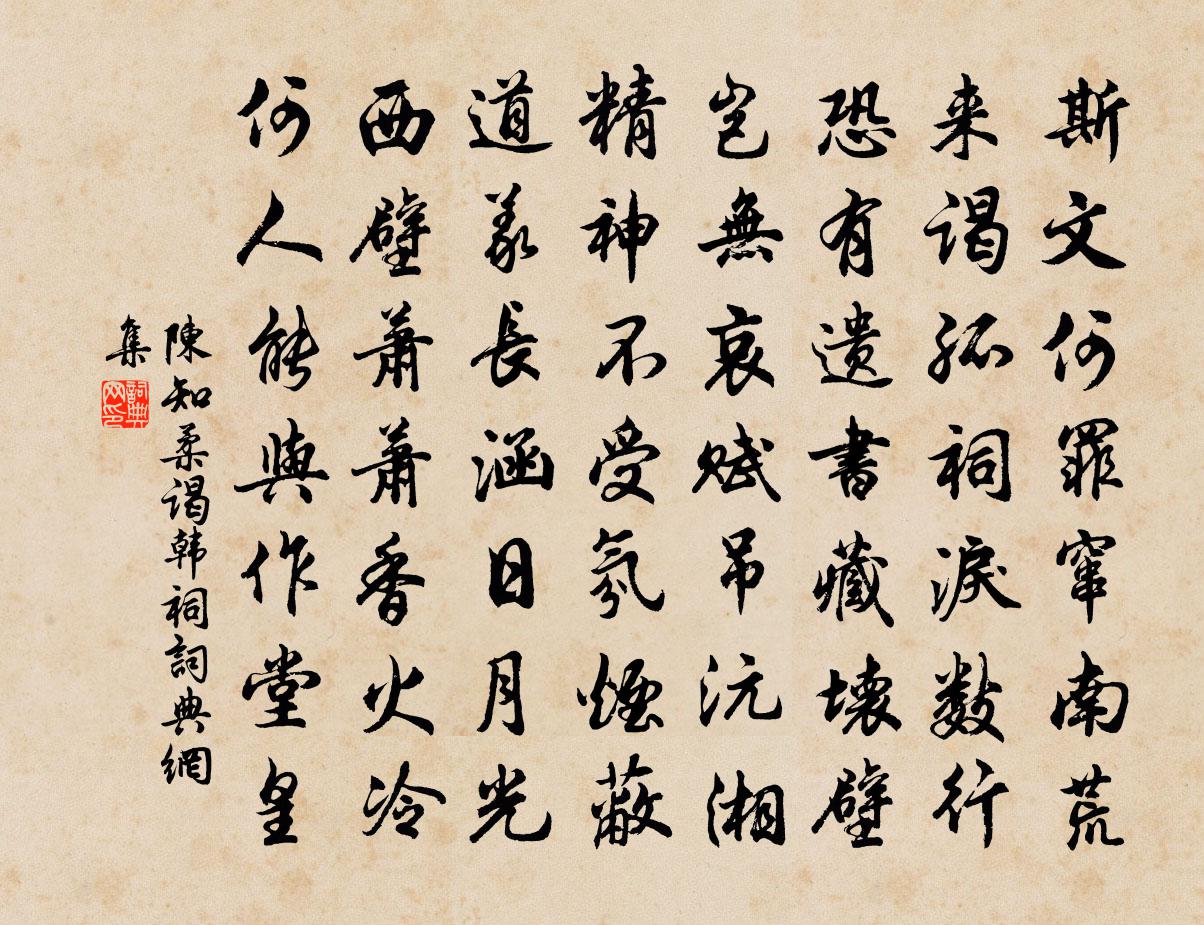 斯文何罪窜南荒
来谒孤祠淚数行
恐有遗書藏壊壁
岂無哀赋吊沅湘
精神不受氛煙蔽
道義長涵日月光
西壁萧萧香火冷
何人能與作堂皇
陳知柔谒韩祠詞典網
集
詞典
网印